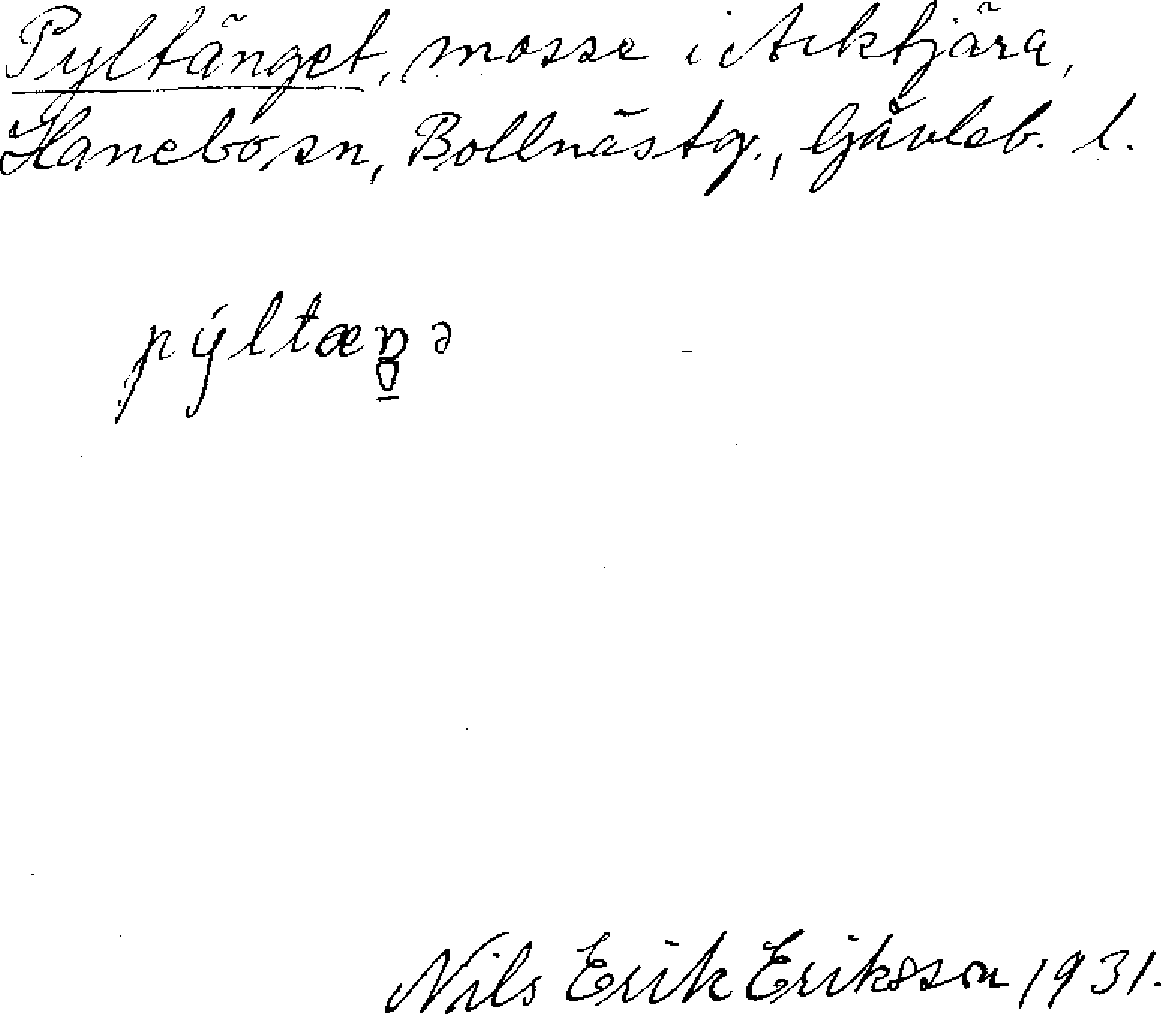 Pyltänget, mosse i Arktjära,
Hanebo sn, Bollnästg., Gävleb. l.
pýltæŋə
Nils Erik Eriksson 1931.